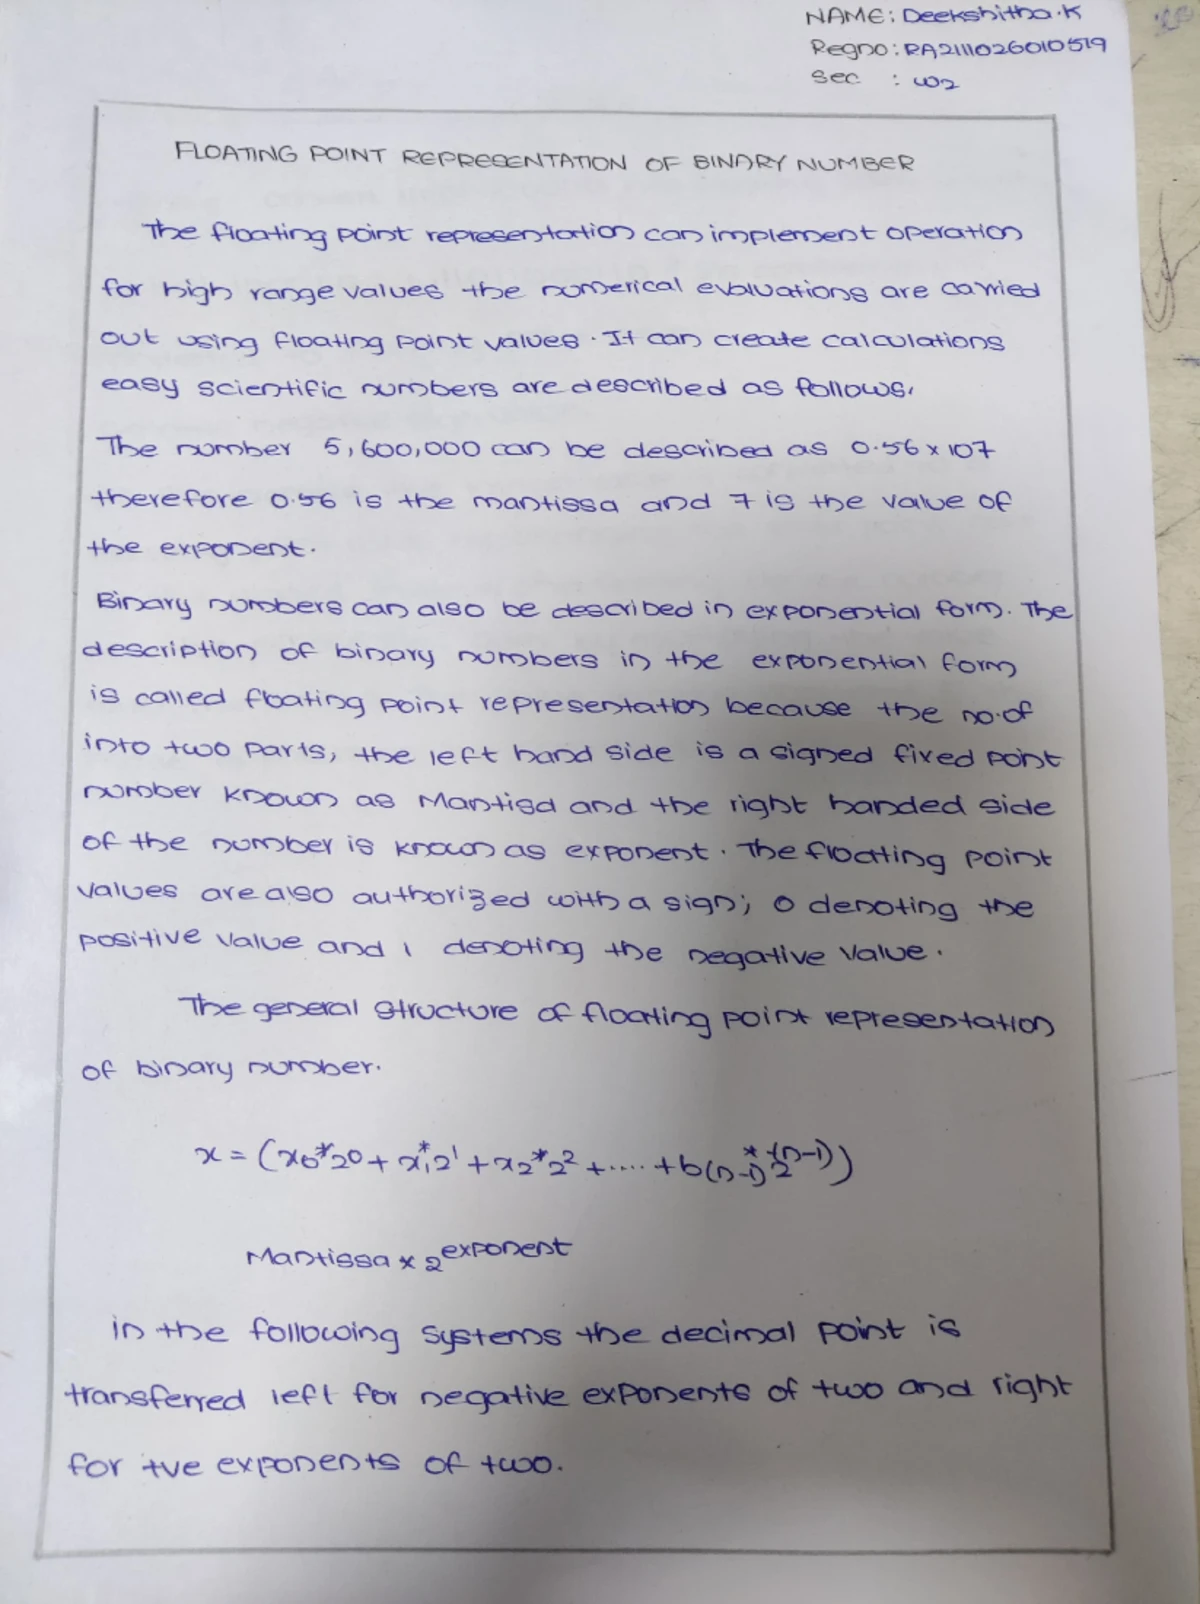 NAME: Deekshitha.K
Regno: RA2111026010519
Sec : W2
FLOATING POINT REPRESENTATION OF BINARY NUMBER
The floating point representation can implement operation
for high range values the numerical evaluations are carried
out using floating point values. It can create calculations
easy scientific numbers are described as follows,
The number 5,600,000 can be described as 0.56 x 107
therefore 0.56 is the mantissa and 7 is the value of
the exponent.
Binary numbers can also be described in exponential form. The
description of binary numbers in the exponential form
is called floating point representation because the no.of
into two parts, the left hand side is a signed fixed point
number known as Mantisa and the right handed side
of the number is known as exponent. The floating point
values are also authorized with a sign; 0 denoting the
positive value and 1 denoting the negative value.
The general structure of floating point representation
of binary number.
x = (x0*20 + x1*2¹ + x2*2² + ..... + b(n-1)*2^(n-1))
Mantissa x 2^exponent
in the following systems the decimal point is
transferred left for negative exponents of two and right
for +ve exponents of two.